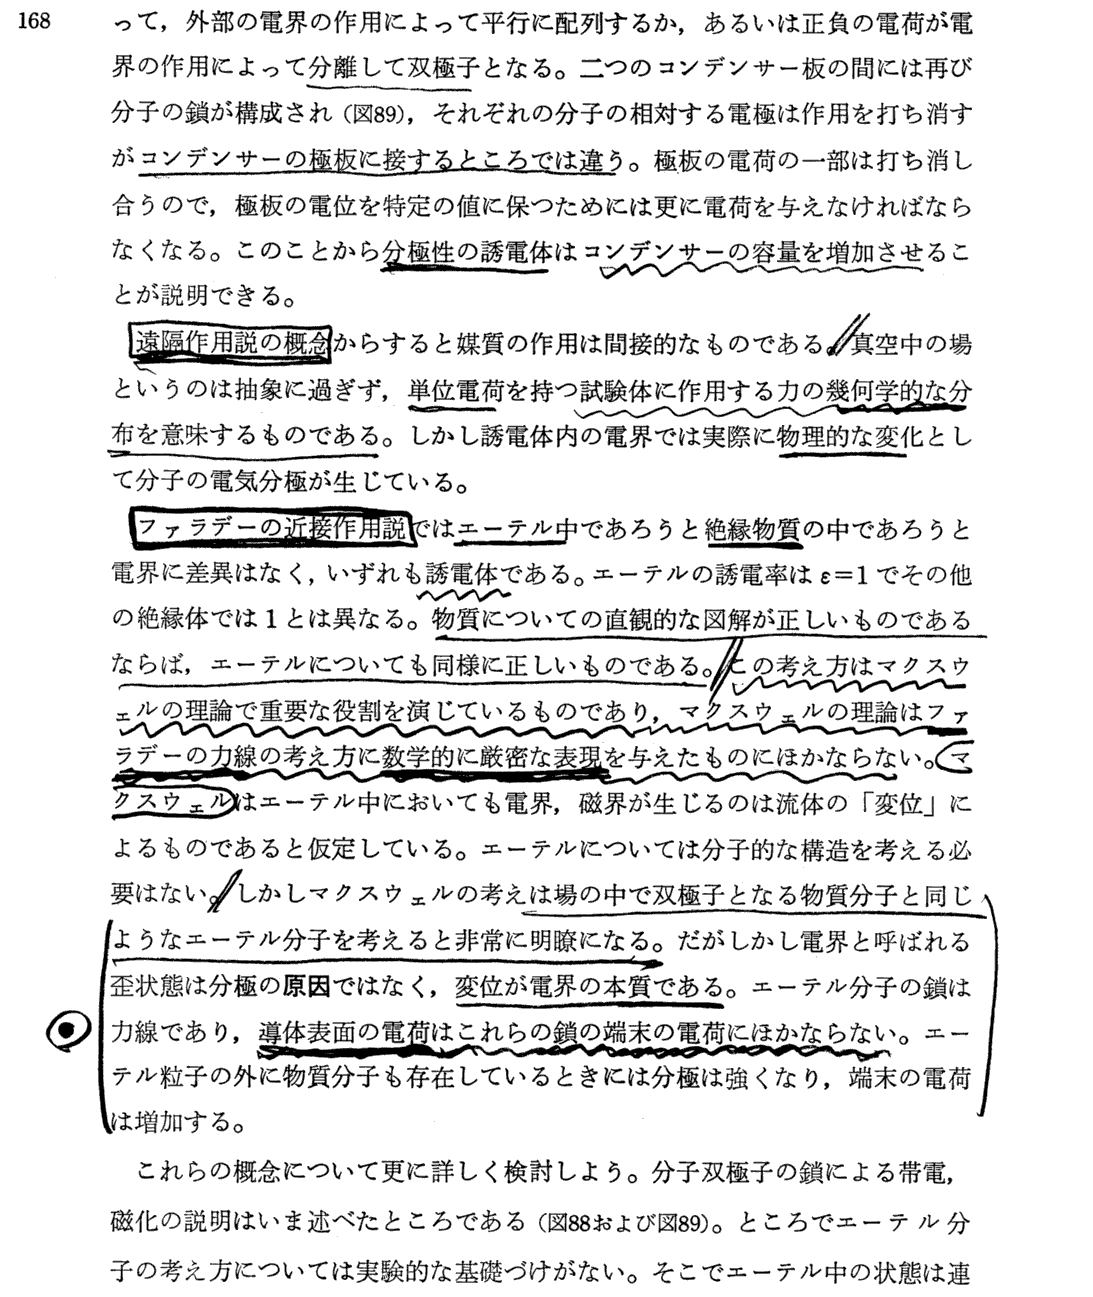 168
って，外部の電界の作用によって平行に配列するか，あるいは正負の電荷が電
界の作用によって分離して双極子となる。二つのコンデンサー板の間には再び
分子の鎖が構成され（図89），それぞれの分子の相対する電極は作用を打ち消す
がコンデンサーの極板に接するところでは違う。極板の電荷の一部は打ち消し
合うので，極板の電位を特定の値に保つためには更に電荷を与えなければなら
なくなる。このことから分極性の誘電体はコンデンサーの容量を増加させるこ
とが説明できる。
遠隔作用説の概念からすると媒質の作用は間接的なものである。真空中の場
というのは抽象に過ぎず，単位電荷を持つ試験体に作用する力の幾何学的な分
布を意味するものである。しかし誘電体内の電界では実際に物理的な変化とし
て分子の電気分極が生じている。
ファラデーの近接作用説ではエーテル中であろうと絶縁物質の中であろうと
電界に差異はなく，いずれも誘電体である。エーテルの誘電率は ε=1 でその他
の絶縁体では1とは異なる。物質についての直観的な図解が正しいものである
ならば，エーテルについても同様に正しいものである。この考え方はマクスウ
ェルの理論で重要な役割を演じているものであり，マクスウェルの理論はファ
ラデーの力線の考え方に数学的に厳密な表現を与えたものにほかならない。マ
クスウェルはエーテル中においても電界，磁界が生じるのは流体の「変位」に
よるものであると仮定している。エーテルについては分子的な構造を考える必
要はない。しかしマクスウェルの考えは場の中で双極子となる物質分子と同じ
ようなエーテル分子を考えると非常に明瞭になる。だがしかし電界と呼ばれる
歪状態は分極の原因ではなく，変位が電界の本質である。エーテル分子の鎖は
力線であり，導体表面の電荷はこれらの鎖の端末の電荷にほかならない。エー
テル粒子の外に物質分子も存在しているときには分極は強くなり，端末の電荷
は増加する。
これらの概念について更に詳しく検討しよう。分子双極子の鎖による帯電，
磁化の説明はいま述べたところである（図88および図89）。ところでエーテル分
子の考え方については実験的な基礎づけがない。そこでエーテル中の状態は連